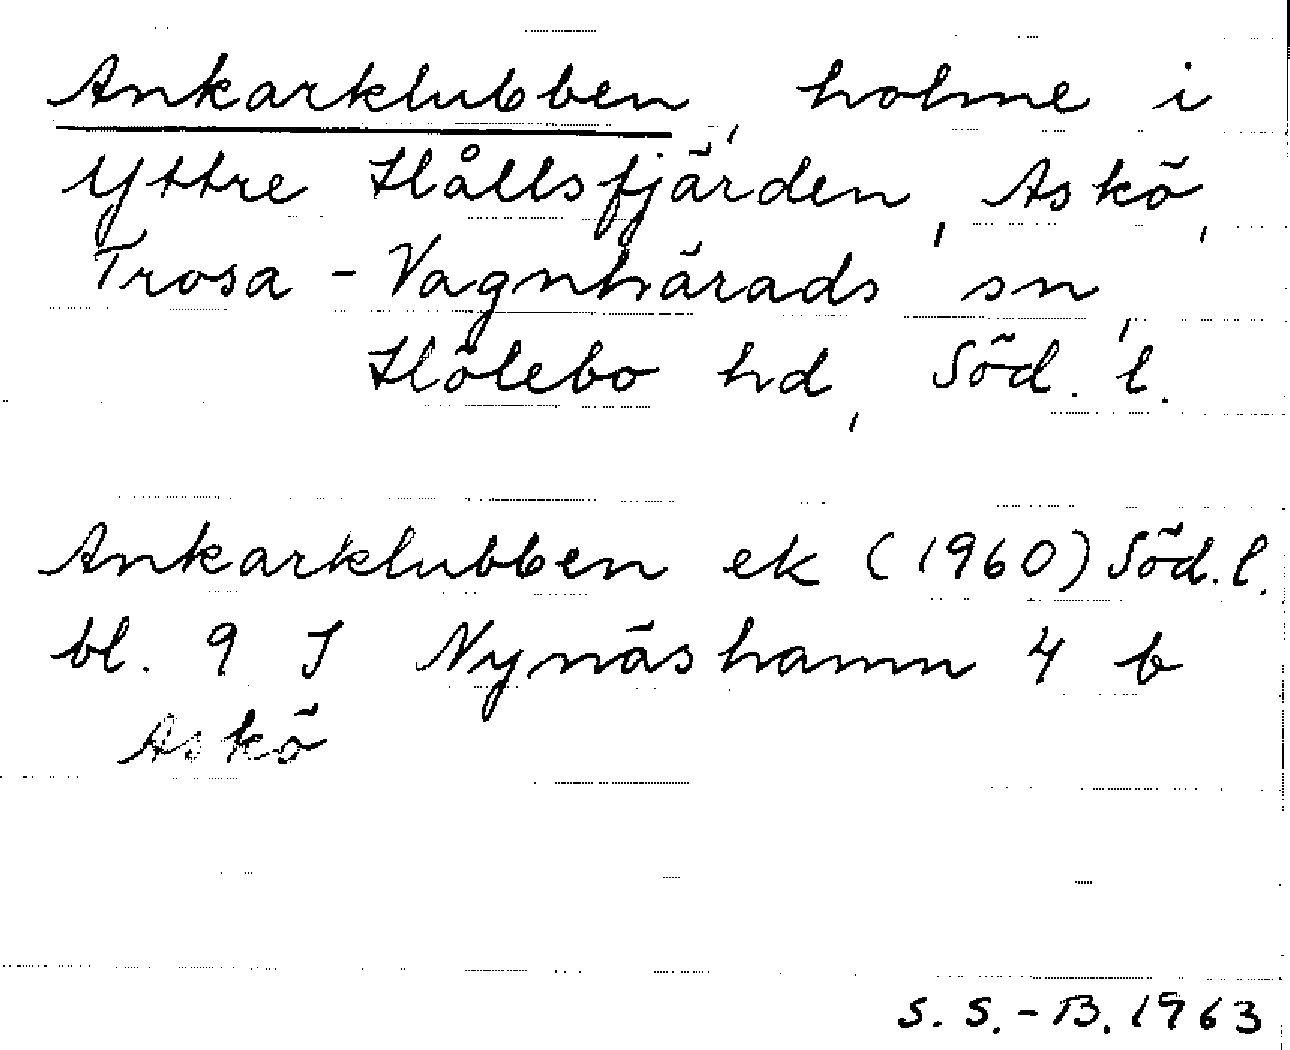 Ankarklubben, holme i
Yttre Hållsfjärden, Askö,
Trosa - Vagnhärads sn,
Hölebo hd, Söd. l.
Ankarklubben ek (1960) Söd. l.
bl. 9 I Nynäshamn 4 b
Askö
S. S.-B. 1963